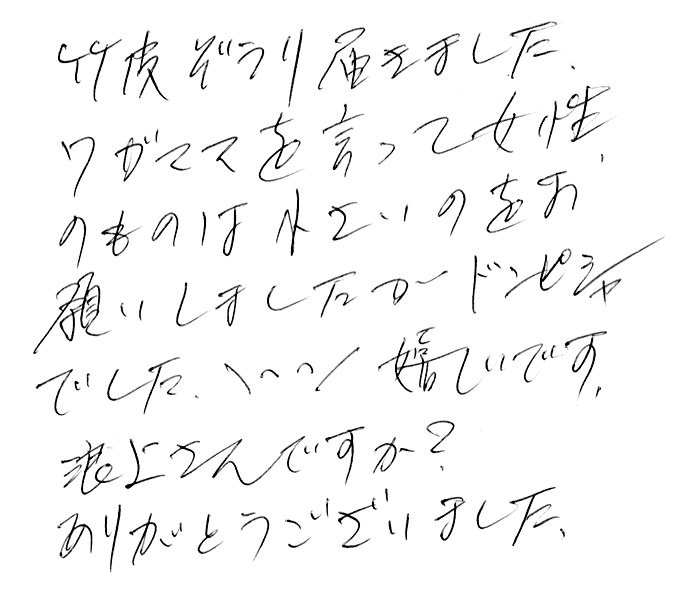 竹皮ぞうり届きました、
ワガママを言って女性、
のものは小さいのをお
願いしましたがドンピシャ
でした、\^^/ 嬉しいです、
浪上さんですか？
ありがとうございました、